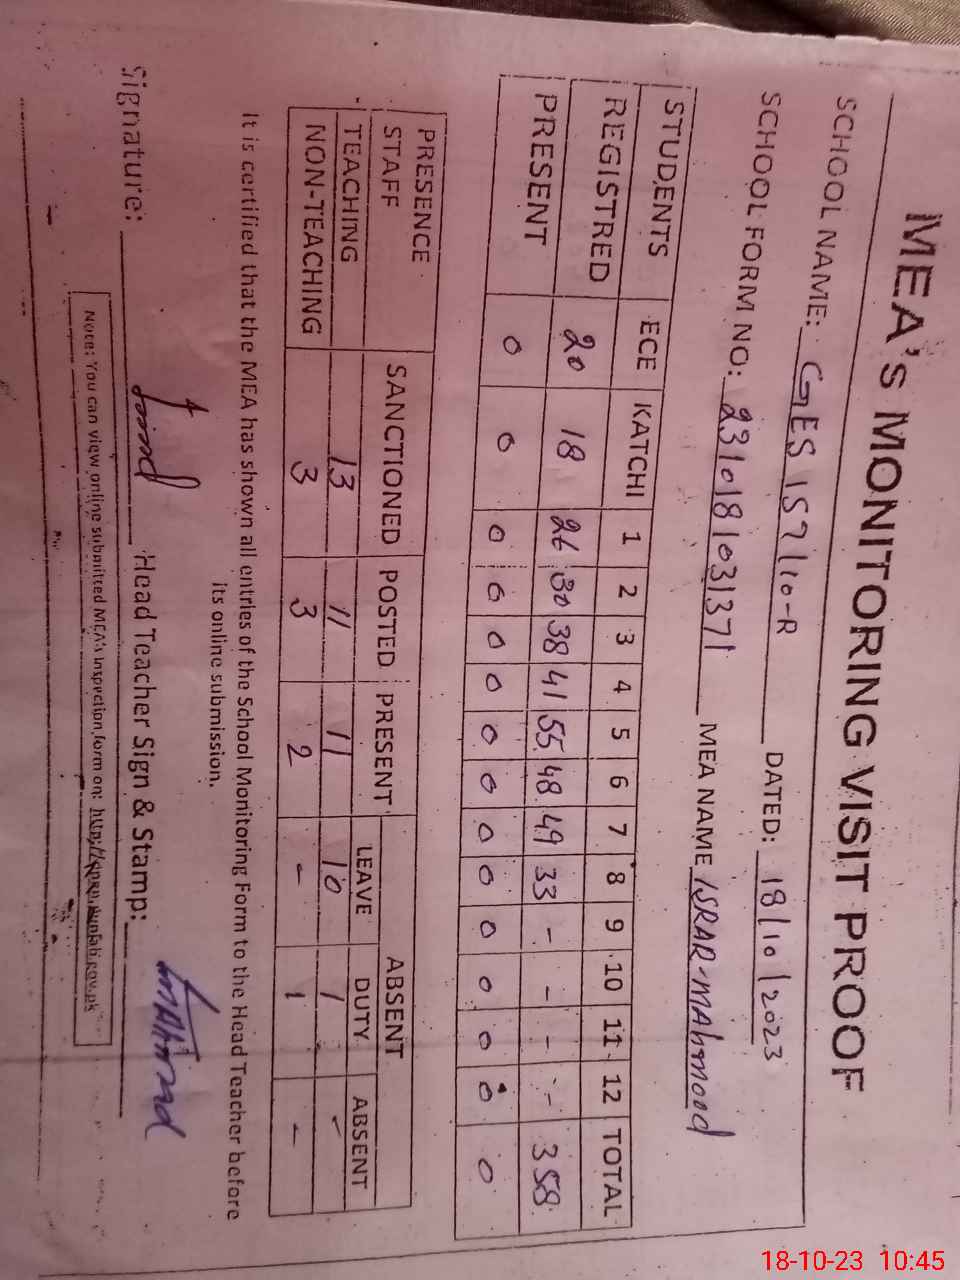 MEA's MONITORING VISIT PROOF
SCHOOL NAME: GES 157/10-R DATED: 18/10/2023
SCHOOL FORM NO: 2310181031371 MEA NAME ISRAR-MAHMOOD
STUDENTS ECE KATCHI 1 2 3 4 5 6 7 8 9 10 11 12 TOTAL
REGISTRED 20 18 26 30 38 41 55 48 49 33 - - - - 358
PRESENT 0 0 0 0 0 0 0 0 0 0 0 0 0 0 0
PRESENCE STAFF SANCTIONED POSTED PRESENT ABSENT
LEAVE DUTY ABSENT
TEACHING 13 11 11 10 1 -
NON-TEACHING 3 3 2 - 1 -
It is certified that the MEA has shown all entries of the School Monitoring Form to the Head Teacher before
its online submission.
Signature: Head Teacher Sign & Stamp:
Note: You can view online submitted MEA's inspection form on:
18-10-23 10:45